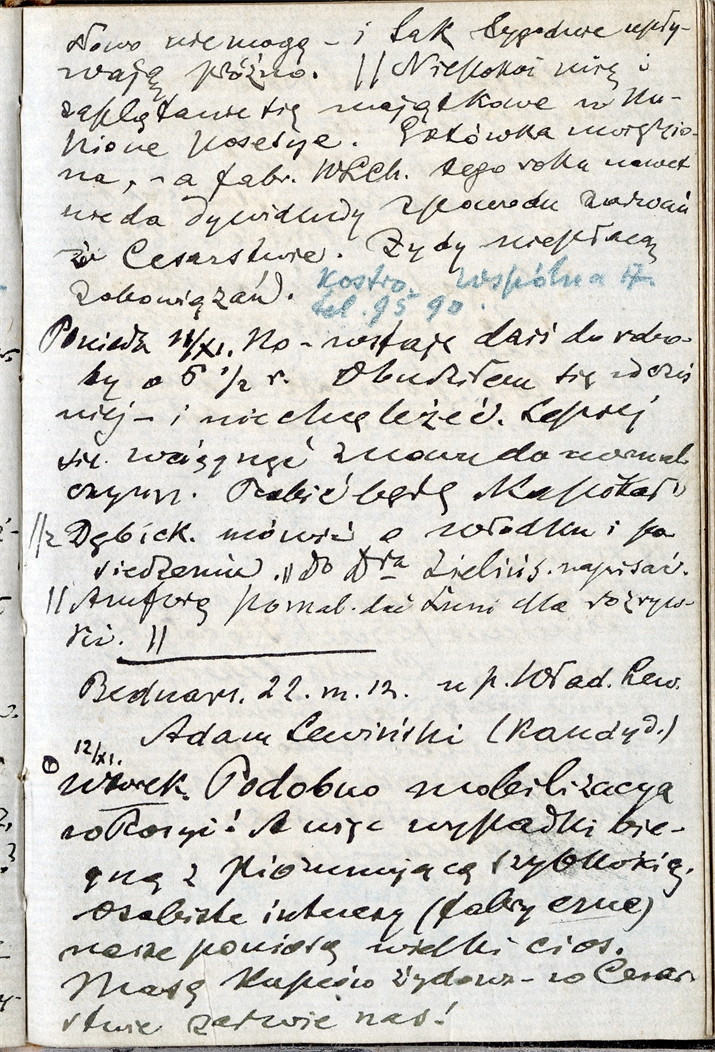 słowo nie mogę – i tak tygodnie upły-
wają późno. || Niepokoi mię i
zaplątanie się majątkowe w Ku-
pione posesye. Gotówka
na, – a fabr. tego roku nawet
nie da dywidendy z powodu zarwań
w Cesarstwie. Żydy niepłacą
zobowiązań. Kostro. Wspólna 17.
tel. 95 90.
Poniedz 11/XI. No – wstaję dziś do robo-
ty o 6 1/2 r. Obudziłem się wcześ
niej – i nie chcę leżeć. Lepiej
się wciągnąć znowu do normal.
czynn. Robić będę
|| z Dębick. mówić o Władku i po
siedzeniu. || do Dra Zielińs. napisać.
|| Amforę pomal. dać Luni dla rozryw-
ki. ||
Bednars. 22. m. 12. u p. Wład. Lew.
Adam Lewiński (Kandyd.)
12/XI.
Wtorek. Podobno mobilizacya
w Rosyi! A więc wypadki bie-
gną z piorunującą szybkością.
Osobiste interesy (fabryczne)
nasze poniosą wielki cios.
Masa kupców żydows – w Cesar-
stwie zarwie nas!